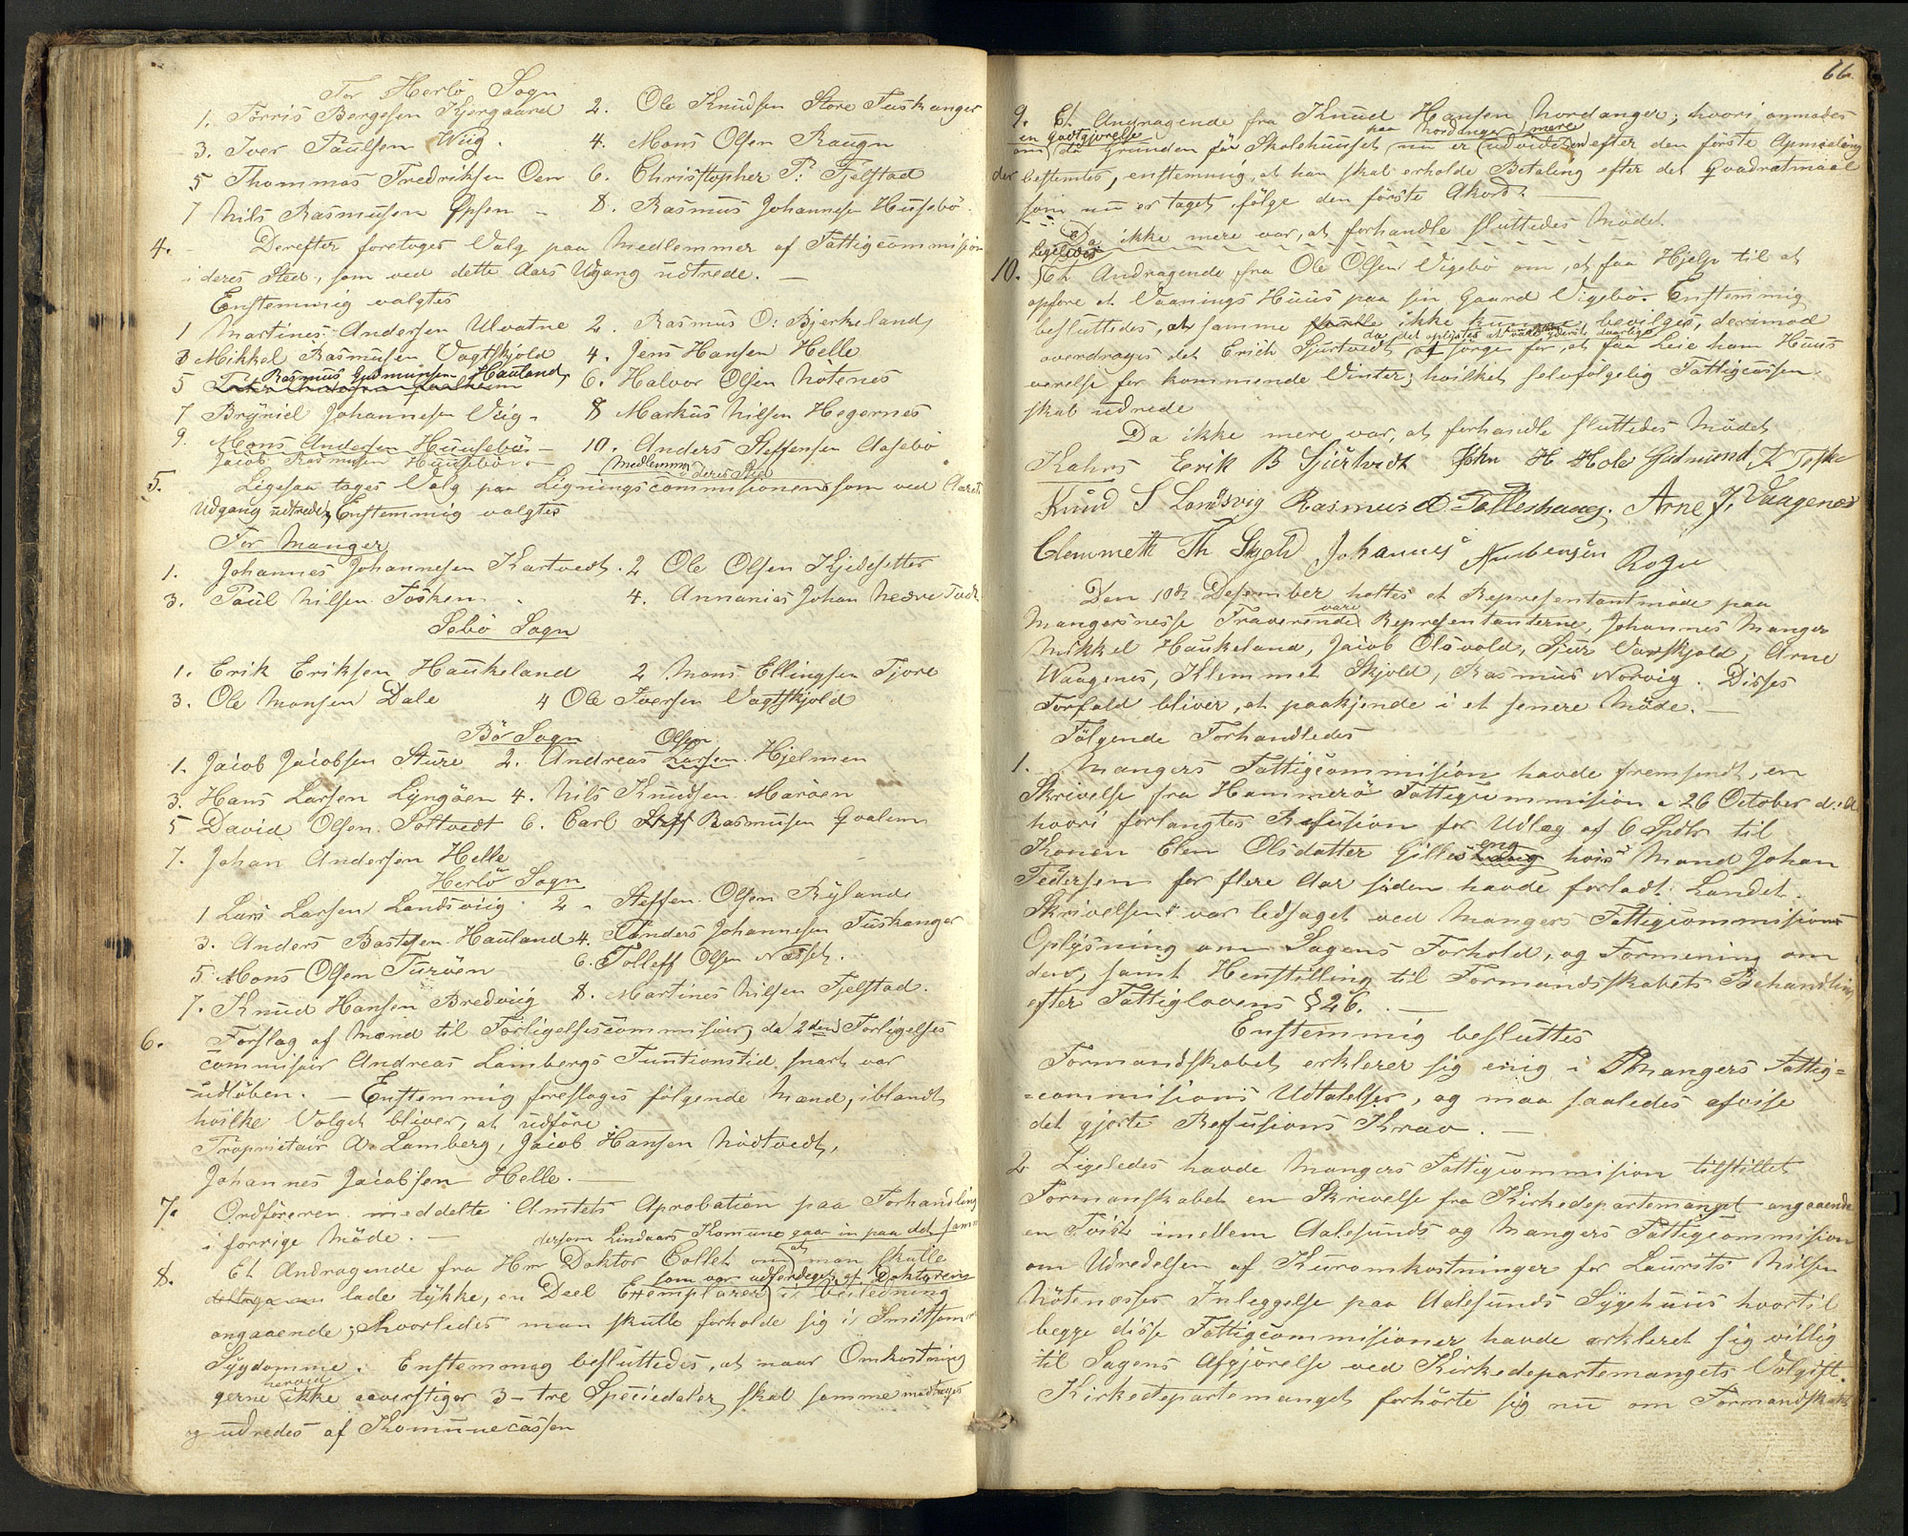 For Herlö Sogn
1. Torris Bergesen Kjergaard 2. Ole Knudsen Store Tuskanger
3. Iver Paulsen Wiig. 4. Mons Olsen Raugn
5 Thommas Fredriksen Oen 6. Christtopher P: Fjelstad
7 Nils Rasmusen Epsen - 8. Rasmus Johannesen Husebö
4. Derefter foretoges Valg paa Medlemmer af Fattigcommisjon
i deres Sted, som ved dette Aars Udgang udtrede. —
Eenstemmig valgtes
1 Martines Andersen Ulvatne 2. Rasmus O: Bjerkeland
3 Mikkel Rasmusen Vagtskjold 4. Jens Hansen Helle
5 Rasmus Gudmunsen Hauland 6. Halvor Olsen Notenes
7 Bryniel Johannesen Viig - 8 Markus Nilsen Hegernes
9. Mons Andersen Huusebö - 10. Anders Steffensen Aasebö
Jacob Rasmusen Huusebö
Medlemm i deres Sted
5. Ligesaa toges Valg paa Ligningscommisionen som ved Aarets
Udgang udtreder, Enstemmig valgtes
For Manger
1. Johannes Johannesen Kartvedt. 2 Ole Olsen Kjedesetter
3. Paul Nilsen Fosken. 4. Annanias Johan Nedre Tvedt
Sebö Sogn
1. Erik Eriksen Haukeland 2 Mons Ellingsen Fjore
3. Ole Monsen Dale 4 Ole Iversen Vagtskjold
Bö Sogn
1. Jacob Jacobsen Sture 2. Andreas Larsen Olsen Hjelmen
3. Hans Larsen Lyngöen 4. Nils Knudsen Maröen
5 David Olsen Toftvedt 6. Carl Rasmusen Qvalem
7. Johan Andersen Helle
Herlö Sogn
1 Lars Larsen Landsviig 2 - Steffen Olsen Ryland
3. Anders Bastesen Hauland 4. Anders Johannesen Tuskanger
5. Mons Olsen Turöen 6. Tolleff Olsen Nesset.
7. Knud Hansen Bredviig 8. Martines Nilsen Fjelstad.
6. Forslag af Mænd til Forligelsescommisair, da 2den Forligelses
commisair Andreas Lambergs Funtionstid snart var
udlöben. — Enstemmig foreslages fölgende Mænd, iblandt
hvilke Valget bliver, at udföre
Proprietair A. Lamberg, Jacob Hansen Nödtvedt,
Johannes Jacobsen Helle. —
7. Ordföreren meddelte Amtets Aprobation paa Forhandling
i forrige Möde. —
dersom Lindaas Komune gaar in paa det samme
8. Et Andragende fra Hr Doktor Collet om at man skulle
deltage en lade tÿkke, en Deel Exemplarer i Veiledning
som var udferdeget af Doktoren
angaaende, hvorledes man skulle forholde sig i Smitsomme
Sygdomme. Enstemmeg besluttedes, at naar Omkostning
gerne herved ikke aaverstiger 3 - tre Speciedaler, skal samme modtages
og udredes af Komunecassen
66.
9. Et Andragende fra Knud Hansen Nordanger; hvori anmodes
om en Godtgjörelse da Grunden for Skolehuuset paa Nordanger nu er mere udvidet end efter den förste Opmaaling
der bestemtes, enstemmig, at han skal erholde Betaling efter det Qvadratmaal
som nu er taget, fölge den förste Akord.
Da ikke mere var, at forhandle sluttedes Mödet.
Ligeledes
10. Et Andragende fra Ole Olsen Vigebö om, at faa Hjelp til at
opföre et Vaanings Huus paa sin Gaard Vigebö. Enstemmig
besluttedes, at samme skulle ikke kunne bevilges, derimod
overdrages det Erich Sjurtvedt at sörge for, at faa Leie ham Huus
verelse for kommende Vinter; hvilket selvfölgelig Fattigcassen
skal udrede
Da ikke mere var, at forhandle sluttedes Mödet
Kahrs Erik B Sjurtvedt John H Hole Gudmund J Toske
Knud S Landsvig Rasmus O Tolleshaug. Arne J. Vaagenes
Clemmett Th Skjold Johannes Andersen Rogne
Den 10de Desember holtes et Representantmöde paa
Mangersnesse Fraverende vare Representanterne, Johannes Manger
Mikkel Haukeland, Jacob Olsvold, Sjur Varskjold, Arne
Waagenes, Klemmet Skjold, Rasmus Norvig. Disses
Forfald bliver, at paakjende i et senere Möde. —
Fölgende Forhandledes
1. Mangers Fattigcommision havde fremsendt, en
Skrivelse fra Hammerö Fattigcommision a 26 October d: A
hvori forlangtes Refusion for Udlæg af 6 Spdlr til
Konen Elen Olsdatter Gilleseng hvis Mand Johan
Pedersen for flere Aar siden havde forladt Landet.
Skrivelsen var ledsaget ved Mangers Fattigcommisions
Oplysning om Sagens Forhold, og Formening om
den, samt Henstilling til Formandsskabets Behandling
efter Fattiglovens § 26. —
Enstemmig besluttes
Formandskabet erklerer sig enig i Mangers Fattig=
=commisions Udtalelser, og maa saaledes afvise
det gjorte Refusions Krav. —
2 Ligeledes havde Mangers Fattigcommision tilstillet
Formanskabet en Skrivelse fra Kirkedepartemanget angaaende
en Tvist imellem Aalesunds og Mangers Fattigcommision
om Udredelsen af Kuromkostninger for Laurits Nilsen
Nötenesses Inleggelse paa Aalesunds Sygehuus hvortil
begge disse Fattigcommisioner havde erkleret sig villig
til Sagens Afgjörelse ved Kirkedepartemangets Volgift.
Kirkedepartemanget forhörte sig nu om Formandskabet